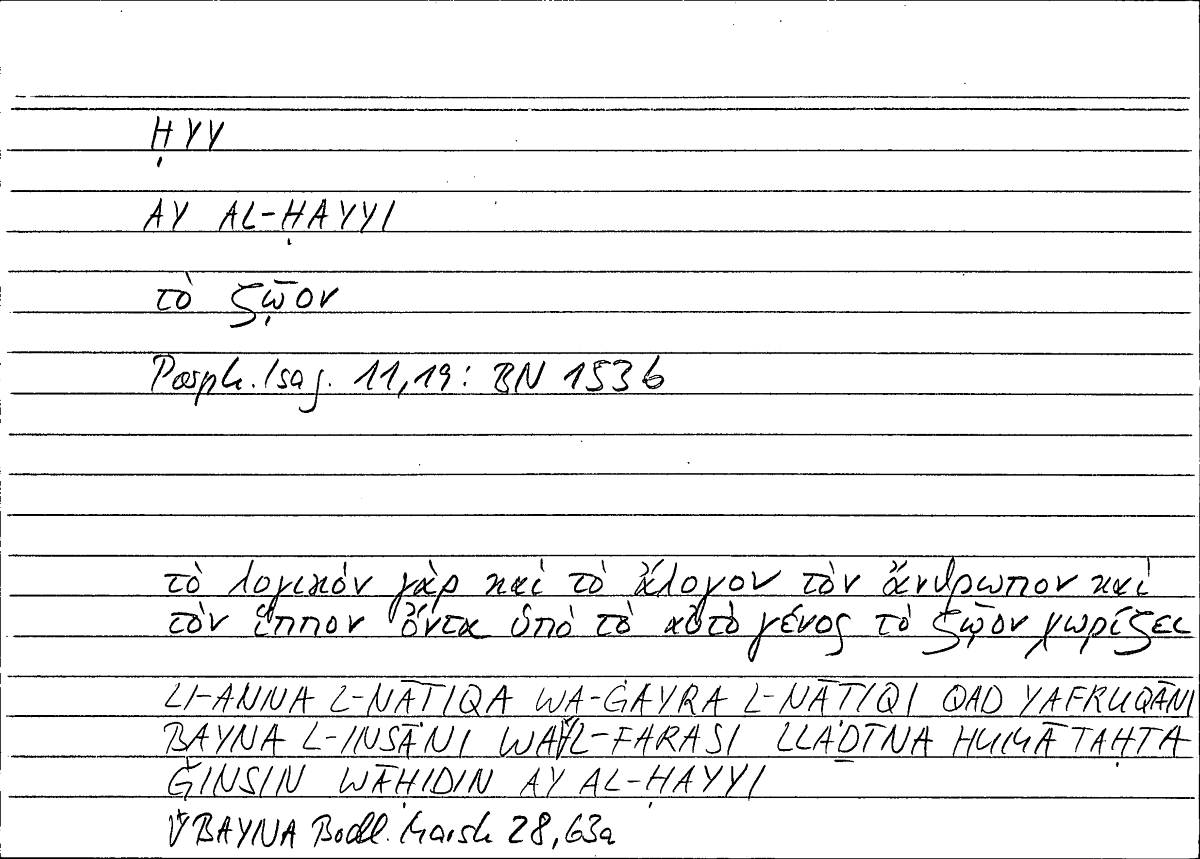 ḤYY
AY AL-ḤAYYI
τὸ ζῷον
Porph. Isag. 11,19: BN 153b
τὸ λογικόν γὰρ καὶ τὸ ἄλογον τὸν ἄνθρωπον καὶ
τὸν ἵππον ὄντα ὑπὸ τὸ αὐτὸ γένος τὸ ζῷον χωρίζει
LI-ANNA L-NĀTIQA WA-ĠAYRA L-NĀTIQI QAD YAFRUQĀNI
BAYNA L-INSĀNI WA L-FARASI LLAḎĪNA HUMĀ TAḤTA
ǦINSIN WĀḤIDIN AY AL-ḤAYYI
BAYNA Bodl. Marsh 28,63a